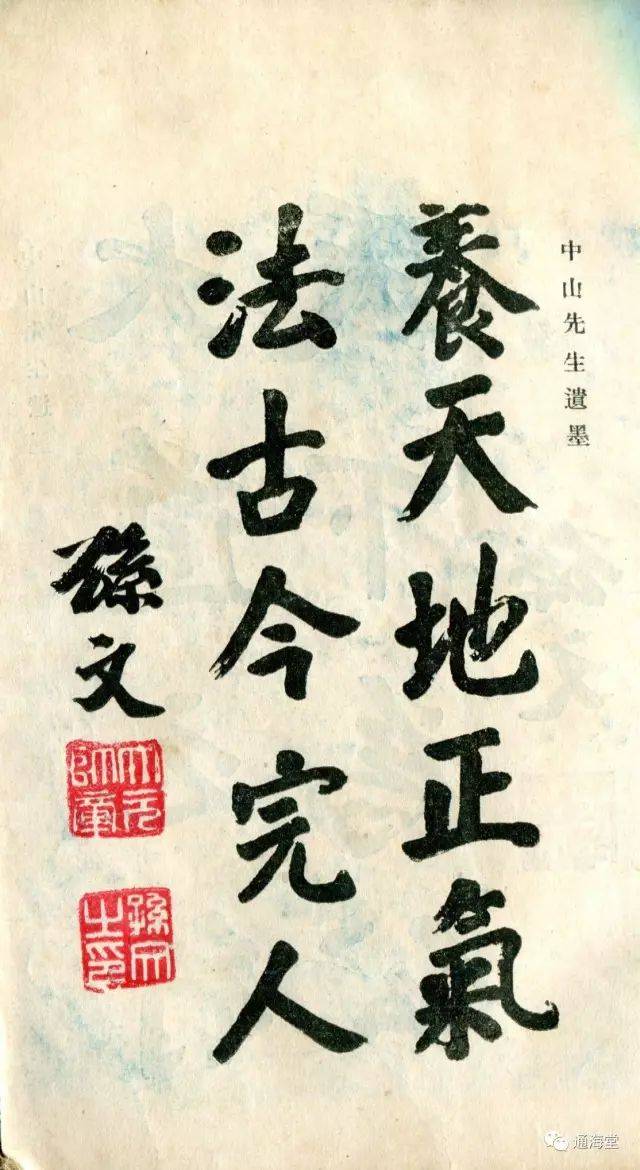 中山先生遺墨
養天地正氣
法古今完人
孫文
大元帥章
孫文之印
通海堂